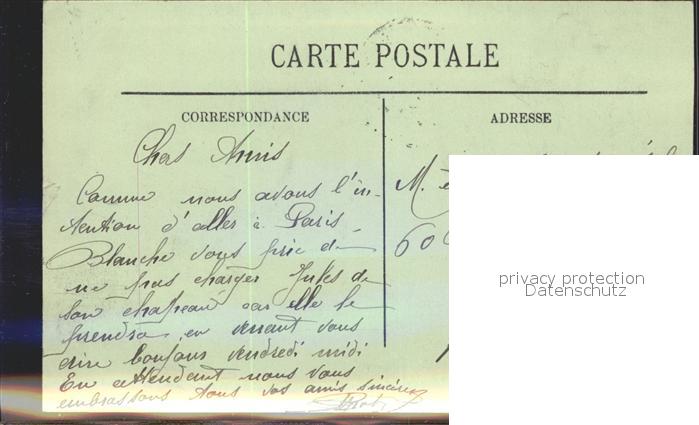 CARTE POSTALE
CORRESPONDANCE
ADRESSE
Chers Amis
Comme nous avons l'in-
tention d'aller à Paris
Blanche vous prie de
ne pas charger Jules de
son chapeau car elle le
prendra en venant vous
dire bonjour vendredi midi
En attendant nous vous
embrassons tous vos amis sincères
M.
60
privacy protection
Datenschutz